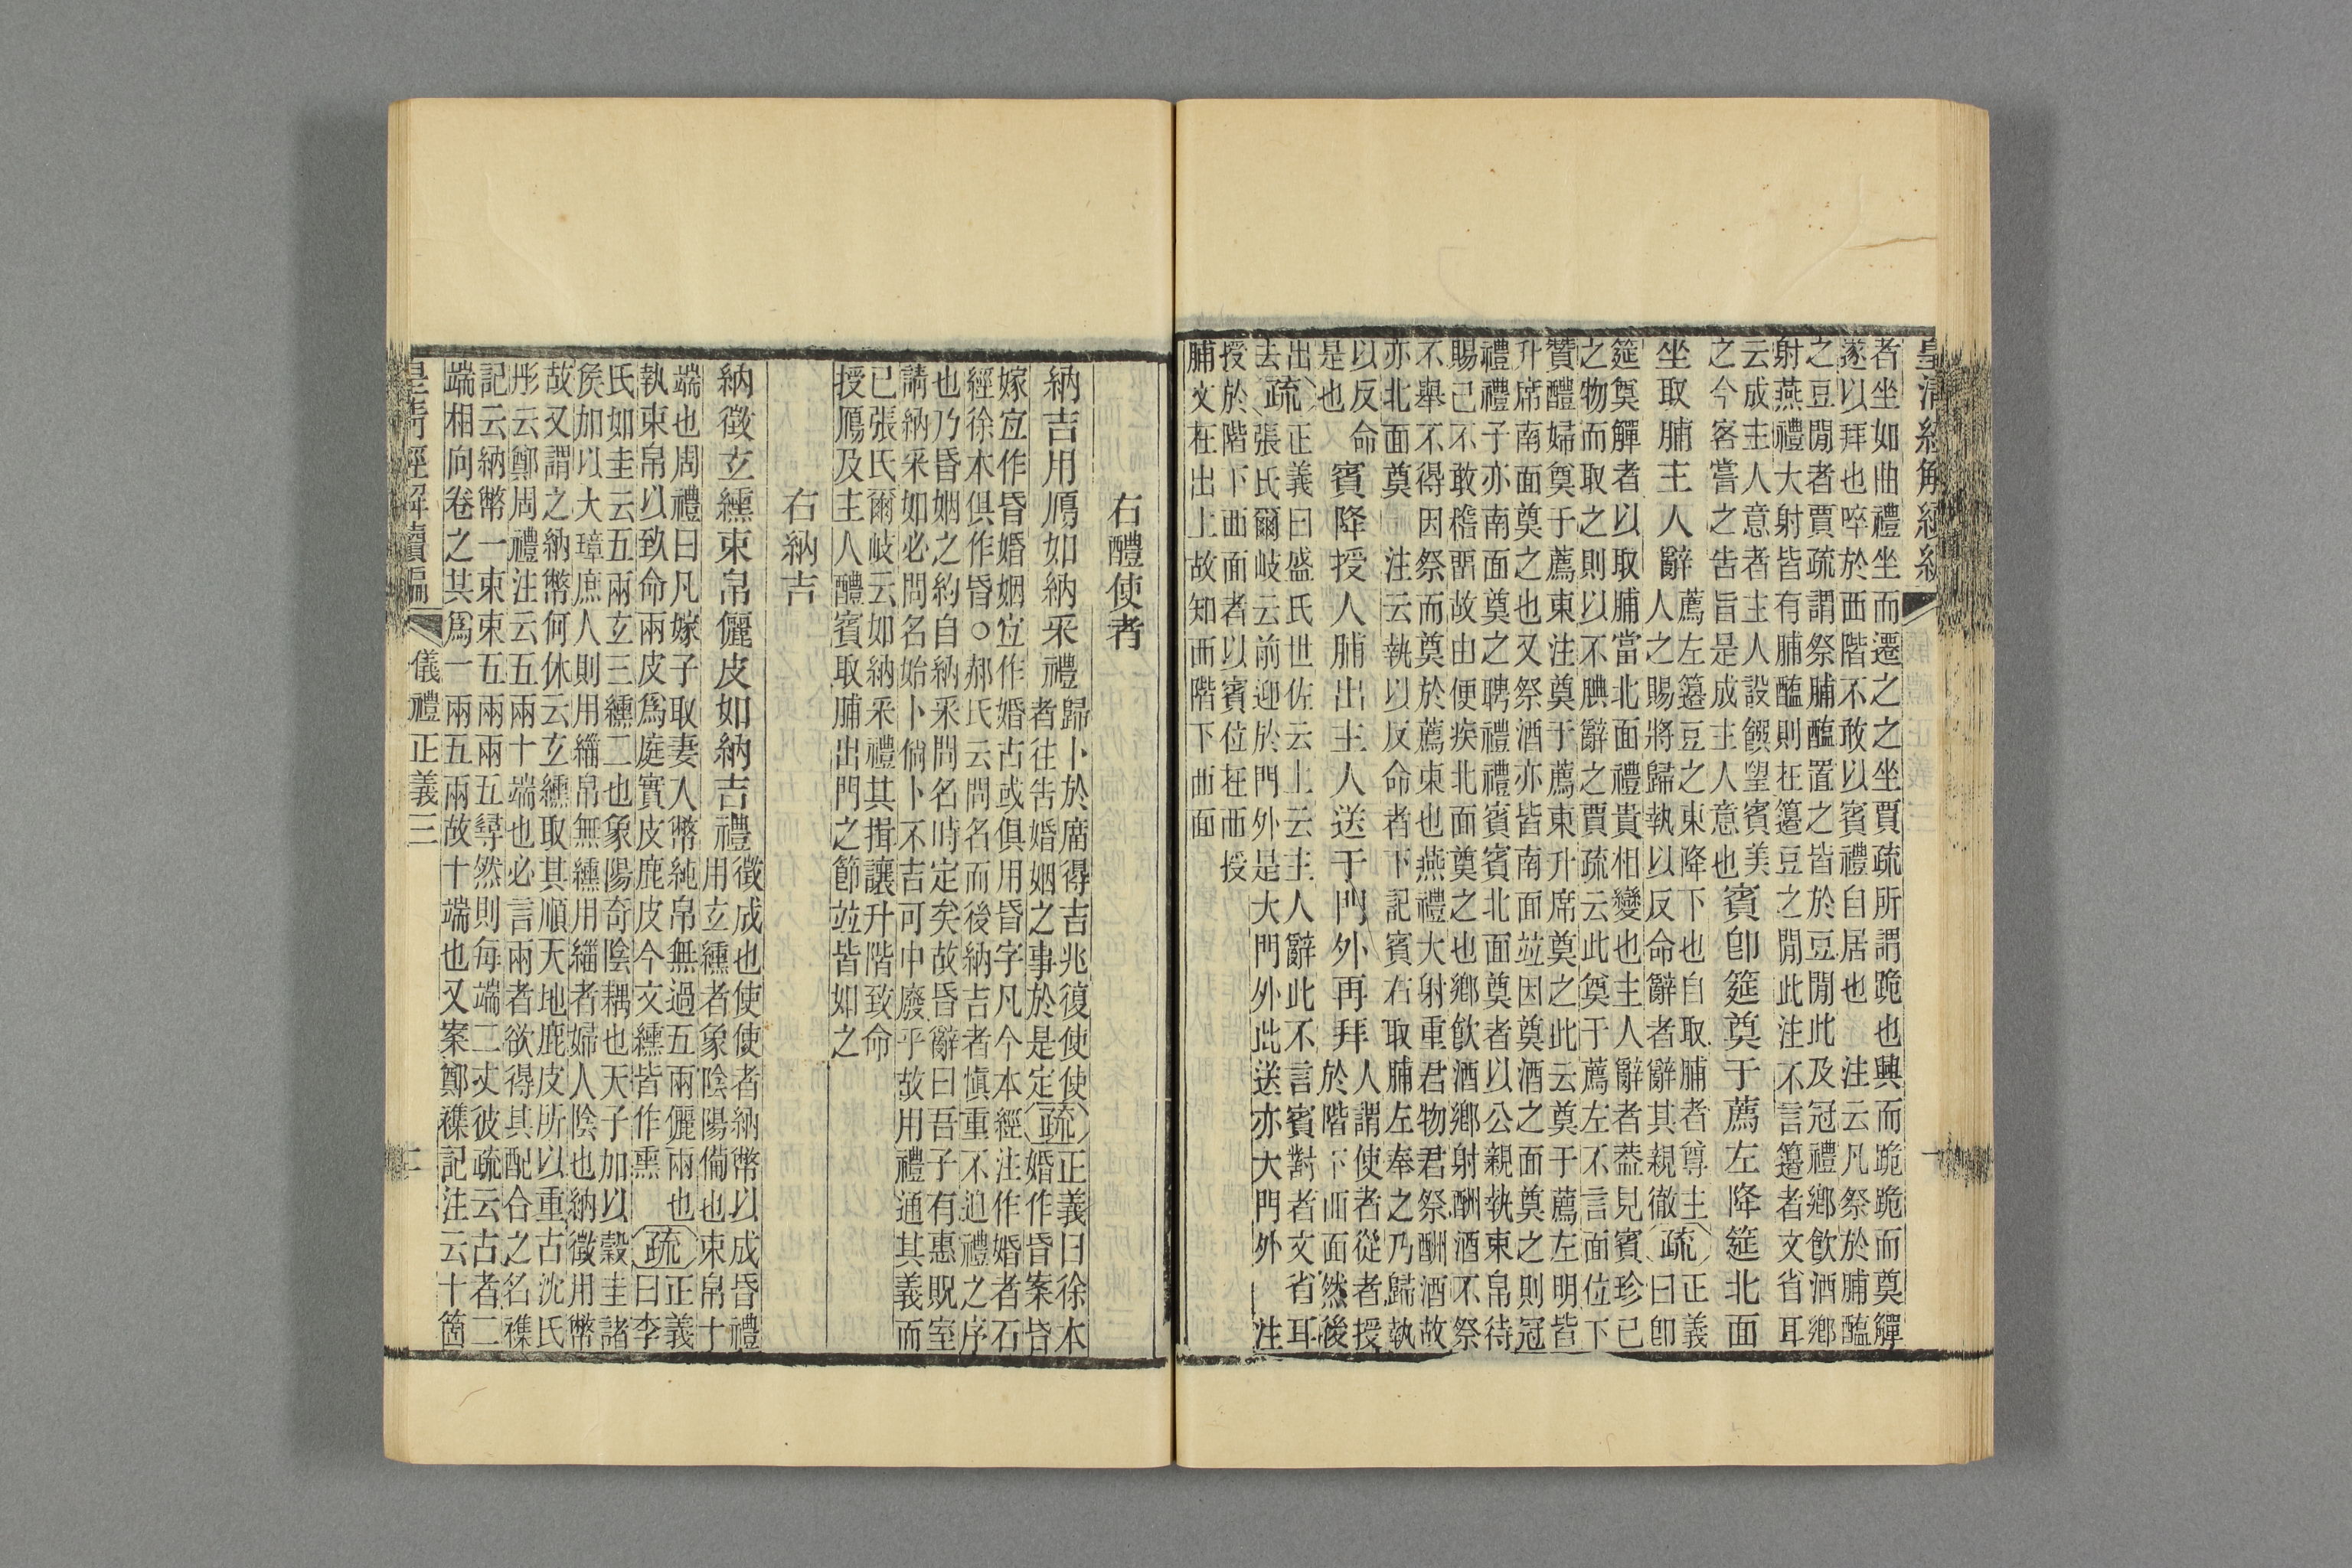 皇清經解續編
者坐如曲禮坐而遷之之坐賈疏所謂跪也興而跪跪而奠觶
遂以拜也啐於西階不敢以賓禮自居也 注云凡祭於脯醢
之豆閒者賈疏謂祭脯醢置之皆於豆閒此及冠禮鄉飲酒鄉
射燕禮大射皆有脯醢則在籩豆之閒此注不言籩者文省耳
云成主人意者主人設饌望賓美
之今客嘗之告旨是成主人意也
賓卽筵奠于薦左降筵北面
坐取脯主人辭
薦左籩豆之東降下也自取脯者尊主
人之賜將歸執以反命辭者辭其親徹
疏
正義
曰卽
筵奠觶者以取脯當北面禮貴相變也主人辭者葢見賓珍己
之物而取之則以不腆辭之賈疏云此奠于薦左不言面位下
贊醴婦奠于薦東注奠于薦東升席奠之此云奠于薦左明皆
升席南面奠之也又祭酒亦皆南面並因奠酒之面奠之則冠
禮禮子亦南面奠之聘禮禮賓賓北面奠者以公親執束帛待
賜己不敢稽畱故由便疾北面奠之也鄉飲酒鄉射酬酒不祭
不舉不得因祭而奠於薦東也燕禮大射重君物君祭酬酒故
亦北面奠 注云執以反命者下記賓右取脯左奉之乃歸執
以反命
是也
賓降授人脯出主人送于門外再拜
人謂使者從者授
於階下西面然後
出
去
疏
正義曰盛氏世佐云上云主人辭此不言賓對者文省耳
張氏爾岐云前迎於門外是大門外此送亦大門外 注
授於階下西面者以賓位在西授
脯文在出上故知西階下西面
右醴使者
納吉用鴈如納采禮
歸卜於廟得吉兆復使使
者往告婚姻之事於是定
疏
正義曰徐本
婚作昏案昏
嫁宜作昏婚姻宜作婚古或俱用昏字凡今本經注作婚者石
經徐本俱作昏○郝氏云問名而後納吉者愼重不迫禮之序
也乃昏姻之約自納采問名時定矣故昏辭曰吾子有惠貺室
請納采如必問名始卜倘卜不吉可中廢乎故用禮通其義而
已張氏爾岐云如納采禮其揖讓升階致命
授鴈及主人醴賓取脯出門之節並皆如之
右納吉
納徵玄纁束帛儷皮如納吉禮
徵成也使使者納幣以成昏禮
用玄纁者象陰陽備也束帛十
端也周禮曰凡嫁子取妻入幣純帛無過五兩儷兩也
執束帛以致命兩皮爲庭實皮鹿皮今文纁皆作熏
疏
正義
曰李
氏如圭云五兩玄三纁二也象陽奇陰耦也天子加以榖圭諸
矦加以大璋庶人則用緇帛無纁用緇者婦人陰也納徵用幣
故又謂之納幣何休云玄纁取其順天地鹿皮所以重古沈氏
彤云鄭周禮注云五兩十端也必言兩者欲得其配合之名襍
記云納幣一束束五兩兩五尋然則每端二丈彼疏云古者二
端相向卷之其爲一兩五兩故十端也又案鄭襍記注云十箇
皇淸經解續編
儀禮正義三
二